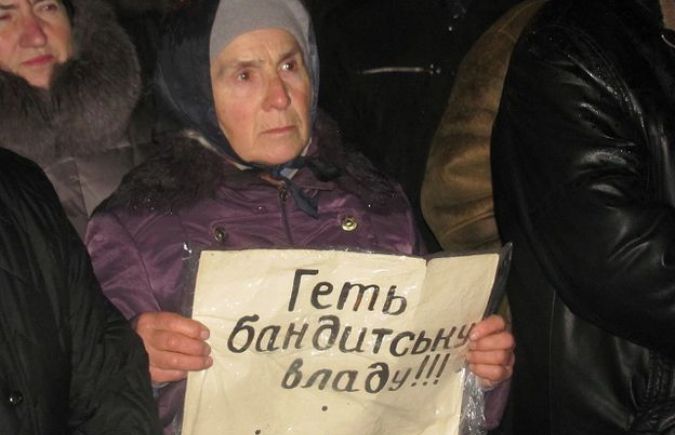 Геть
бандитську
владу!!!